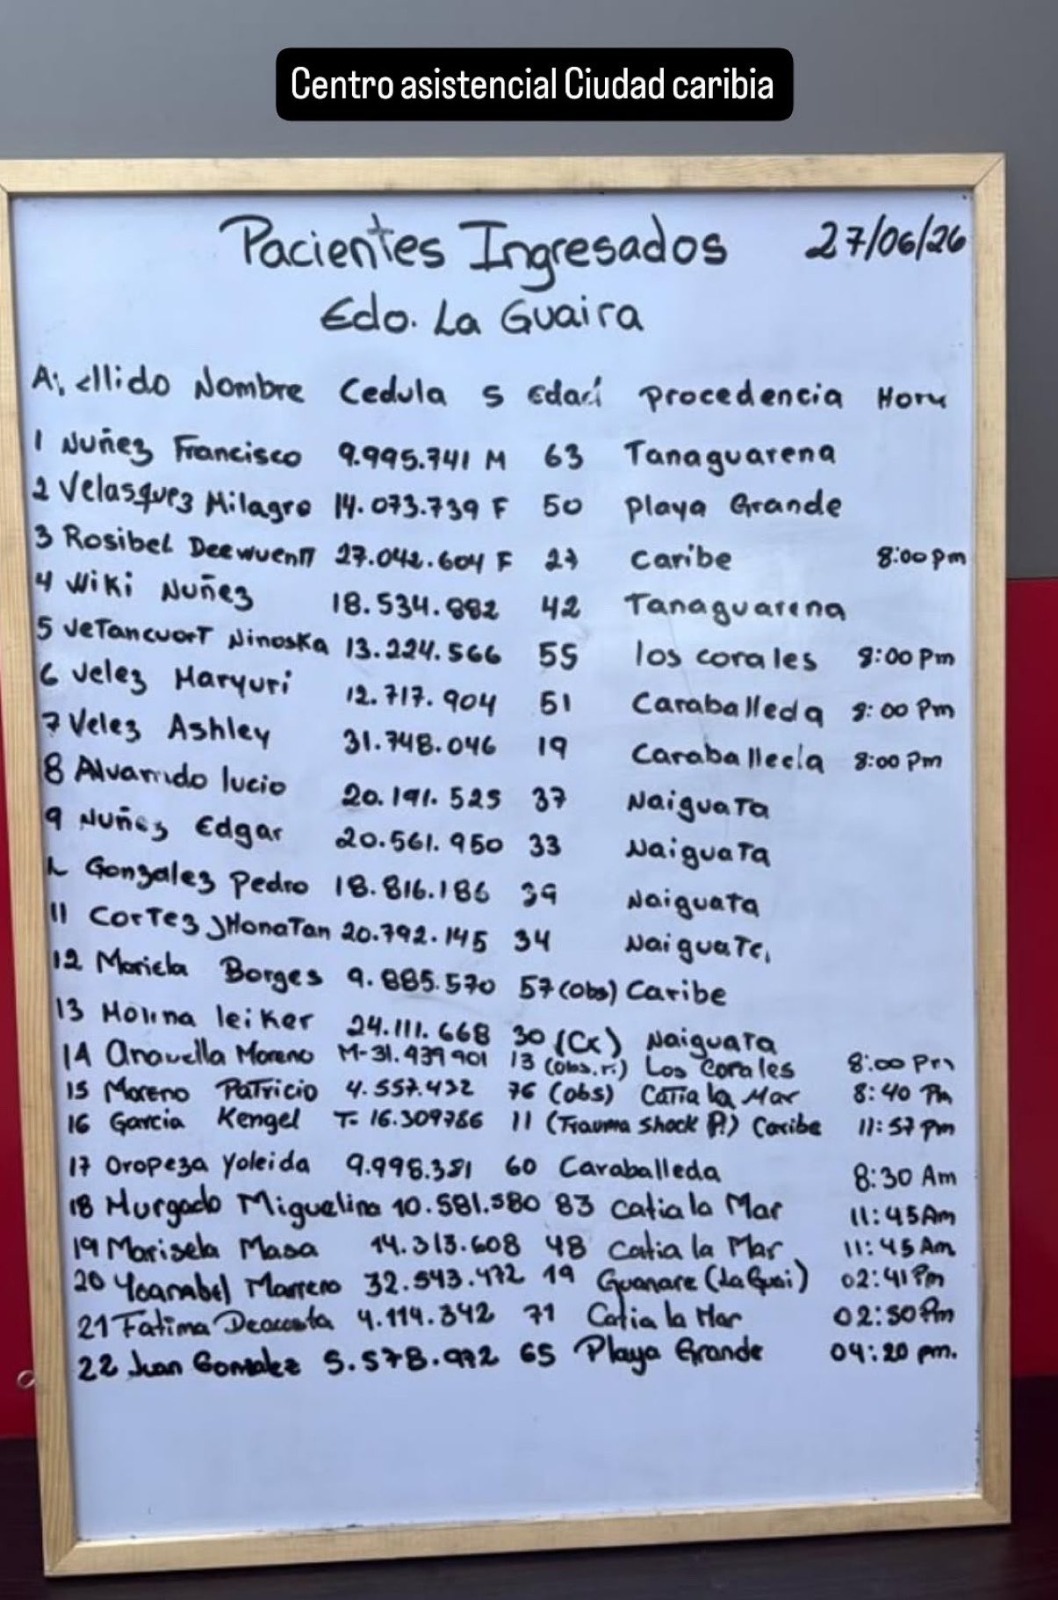 Centro asistencial Ciudad caribia
Pacientes Ingresados 27/06/26
Edo. La Guaira
Nombre Cedula S Edad Procedencia Hora
1 Nuñez Francisco 9.995.741 M 63 Tanaguarena
2 Velasquez Milagro 14.073.739 F 50 Playa Grande
3 Rosibel 27.042.604 F Caribe 8:00 pm
4 Wiki Nuñez 18.534.882 42 Tanaguarena
5 VeTancuorT Ninoska 13.224.566 55 los corales 8:00 Pm
6 Velez Maryuri 12.717.904 51 Caraballeda 8:00 Pm
7 Velez Ashley 31.748.046 19 Caraballeda 8:00 Pm
8 Alvarado lucio 20.191.525 37 NaiguaTa
9 Nuñez Edgar 20.561.950 33 NaiguaTa
Gonzalez Pedro 18.816.186 39 Naiguata
11 CorTez JHonaTan 20.792.145 34 NaiguaTa
12 Mariela Borges 9.885.570 57 (obs) Caribe
13 Molina leiker 24.111.668 30 (Cx) Naiguata
14 Moreno M-31.439901 13 Los Corales 8:00 Pm
15 Moreno Patricio 4.557.432 76 (obs) Catia la Mar 8:40 Pm
16 Garcia Kengel T- 16.309786 11 (Trauma shock Caribe 11:57 pm
17 Oropeza Yoleida 9.998.381 60 Caraballeda 8:30 Am
18 Murgado Miguelina 10.581.580 83 Catia la Mar 11:45 Am
19 Marisela Masa 14.313.608 48 Catia la Mar 11:45 Am
20 Marrero 32.543.472 19 Guanare 02:41 Pm
21 Fatima Deacosta 4.114.342 71 Catia la Mar 02:50 Pm
22 Juan Gonzalez 5.578.992 65 Playa Grande 04:20 pm.